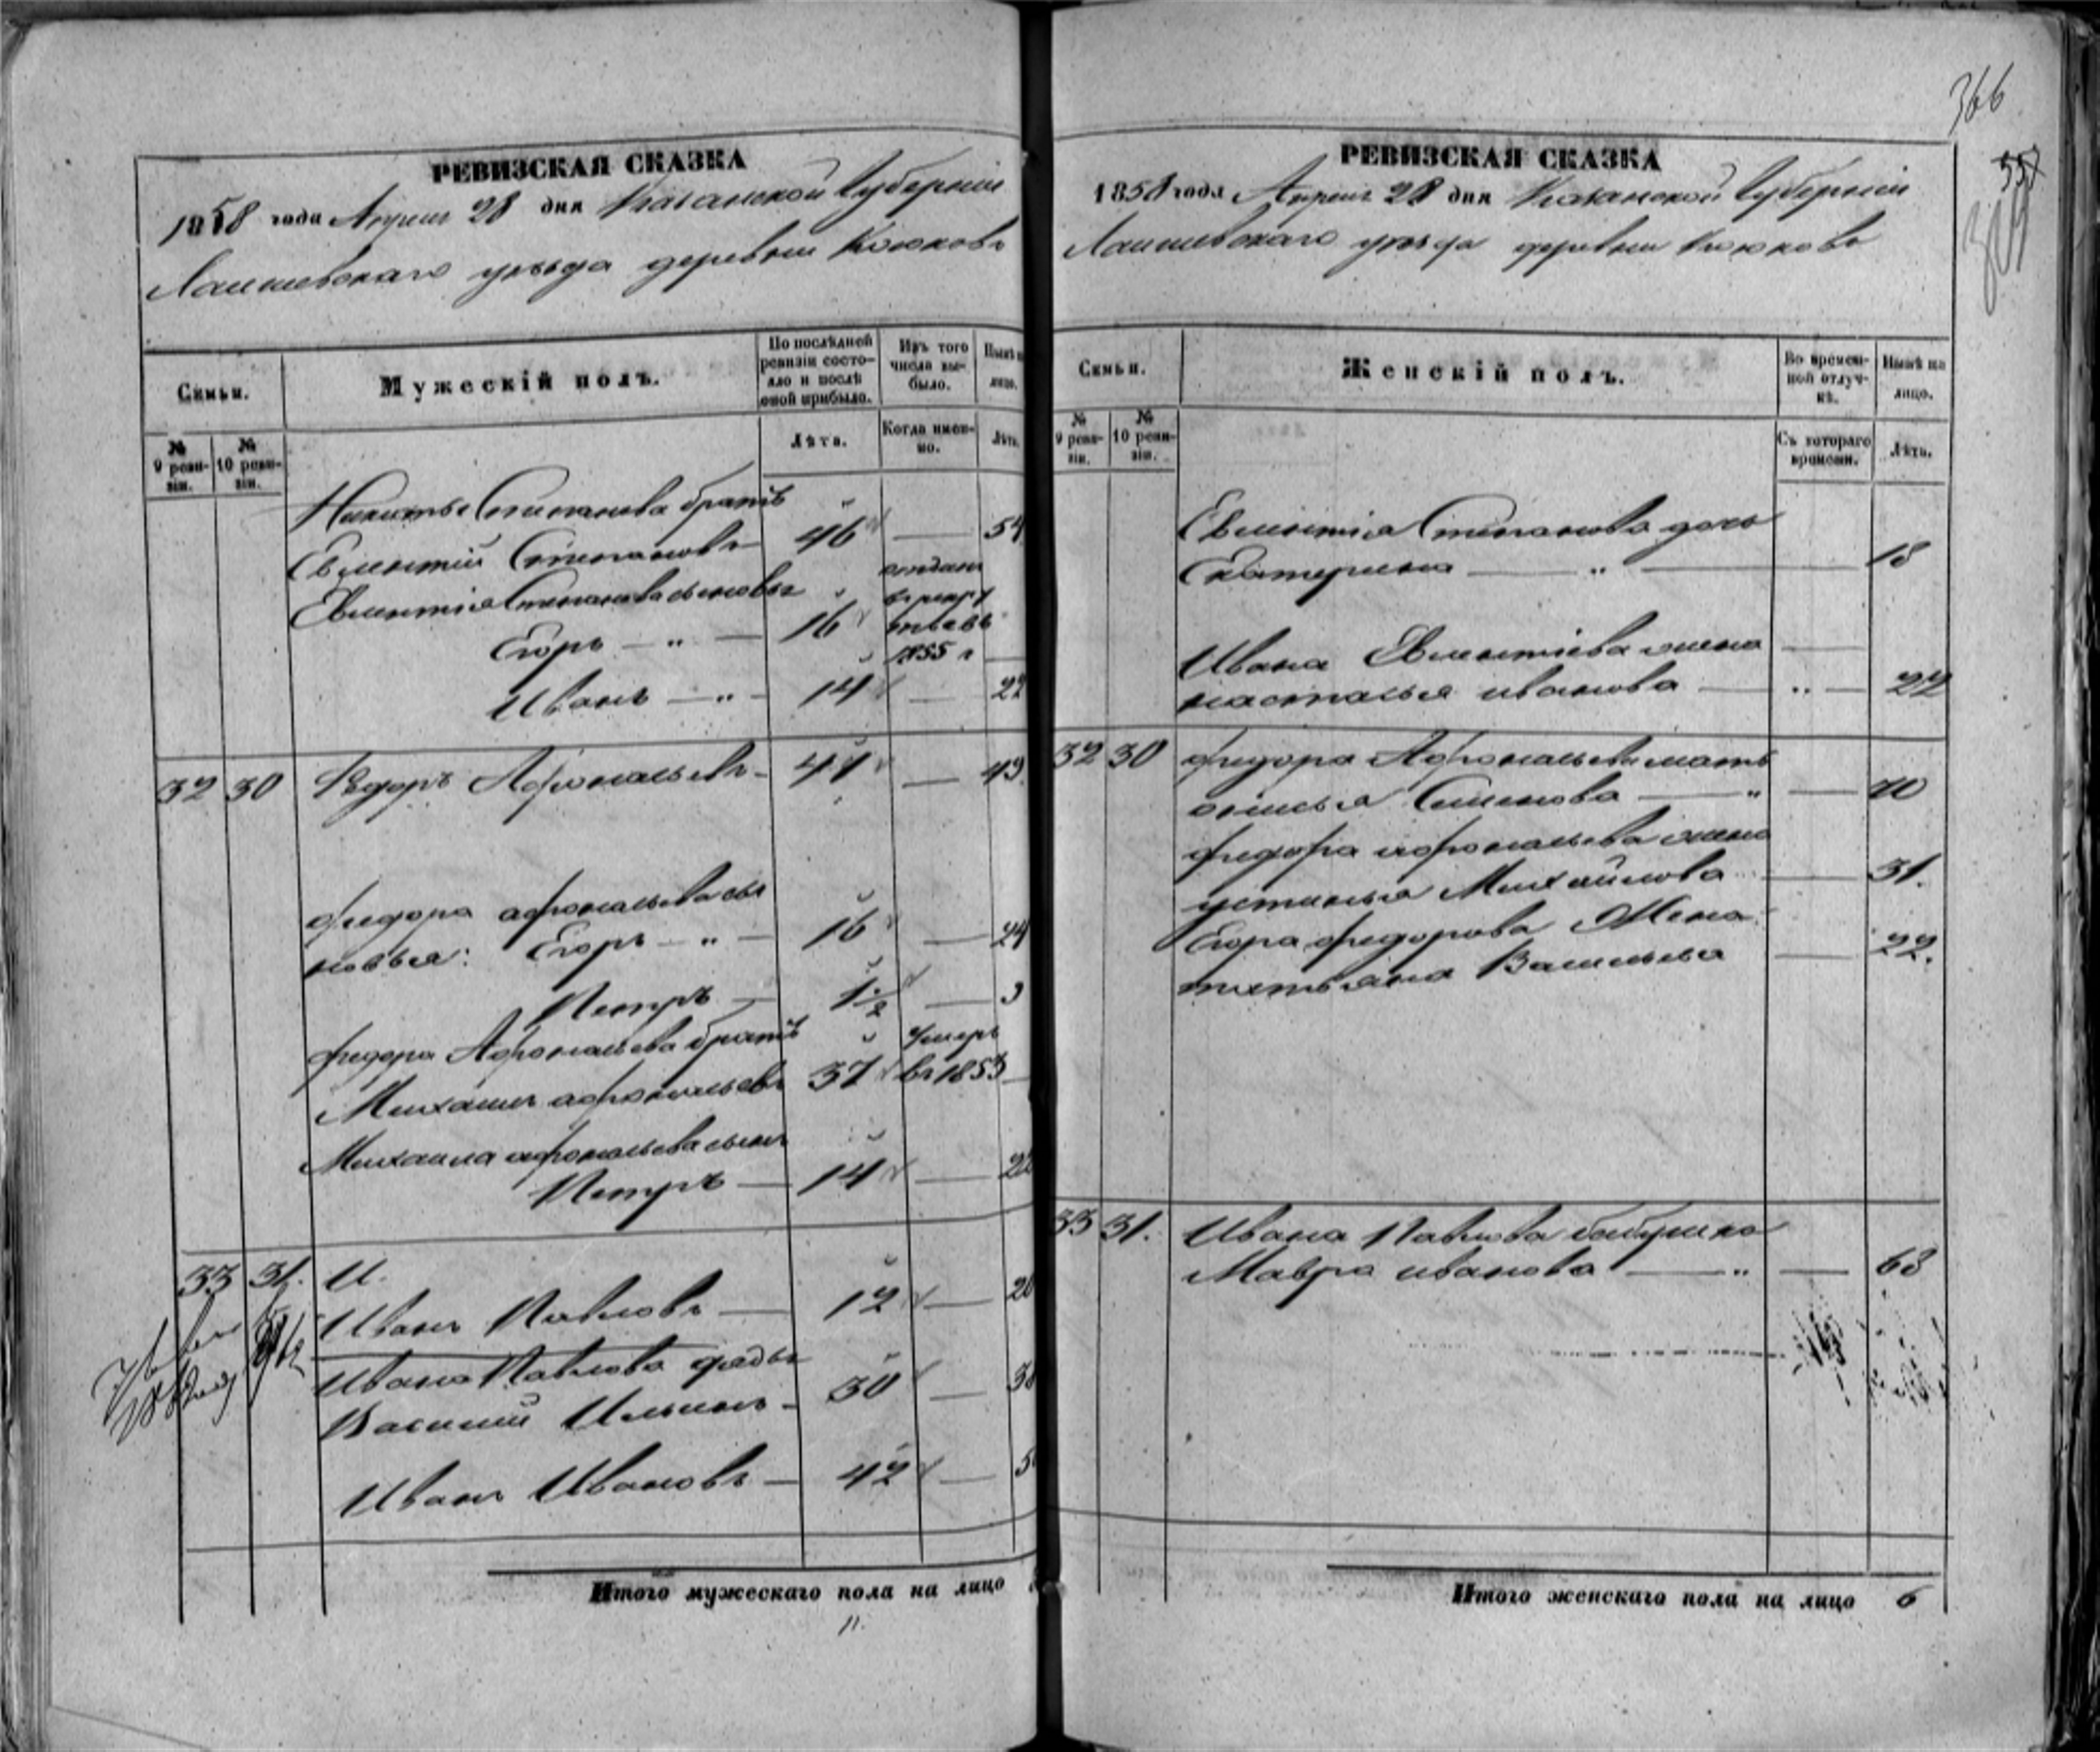 366
557
РЕВИЗСКАЯ СКАЗКА
1858 года Апреля 28 дня Казанской Губернии
Лаишевскаго уезда деревни Коюкова
Семьи.
Мужескій полъ.
По послѣдней ревизіи состо-
яло и послѣ оной прибыло.
Изъ того числа вы-
было.
Нынѣ на
лицо.
№ 9 реви-
зіи.
№ 10 реви-
зіи.
Лѣта.
Когда имен-
но.
Лѣта.
Никиты Степанова братъ
Евлентій Степановъ 46 — 54
Евлентія Степанова сыновья отданъ
Егоръ — " — 16 въ рекру
тъ въ
1855 г
Иванъ — " — 14 — 22
32 30 Ѳедоръ Афонасьевъ 41 — 49
Федора афонасьева сы
новья: Егоръ — " — 16 — 24
Петръ — 1 1/2 — 9
Федора Афонасьева братъ умеръ
Михаилъ афонасьевъ 37 въ 1853
Михаила афонасьева сынъ
Петръ — 14 — 22
33 31. И.
Иванъ Павловъ — 12 — 20
Ивана Павлова дяди
Василій Ильинъ 30 — 38
Иванъ Ивановъ — 42 — 5
Итого мужескаго пола на лицо
11.
РЕВИЗСКАЯ СКАЗКА
1858 года Апреля 28 дня Казанской Губернии
Лаишевскаго уезда деревни Коюкова
Семьи.
Женскій полъ.
Во времен-
ной отлуч-
кѣ.
Нынѣ на
лицо.
№ 9 реви-
зіи.
№ 10 реви-
зіи.
Съ котораго
времени.
Лѣта.
Евлентія Степанова дочь
Екатерина — " — 18
Ивана Евлентіева жена
настасья иванова — " — 22
32 30 Федора Афонасьева мать
Семенова — " — 70
Федора афонасьева жена
устинья Михайлова — 31.
Егора Федорова Жена
татьяна Васильева — 22.
33 31. Ивана Павлова бабушка
Мавра иванова — " — 63
Итого женскаго пола на лицо 6